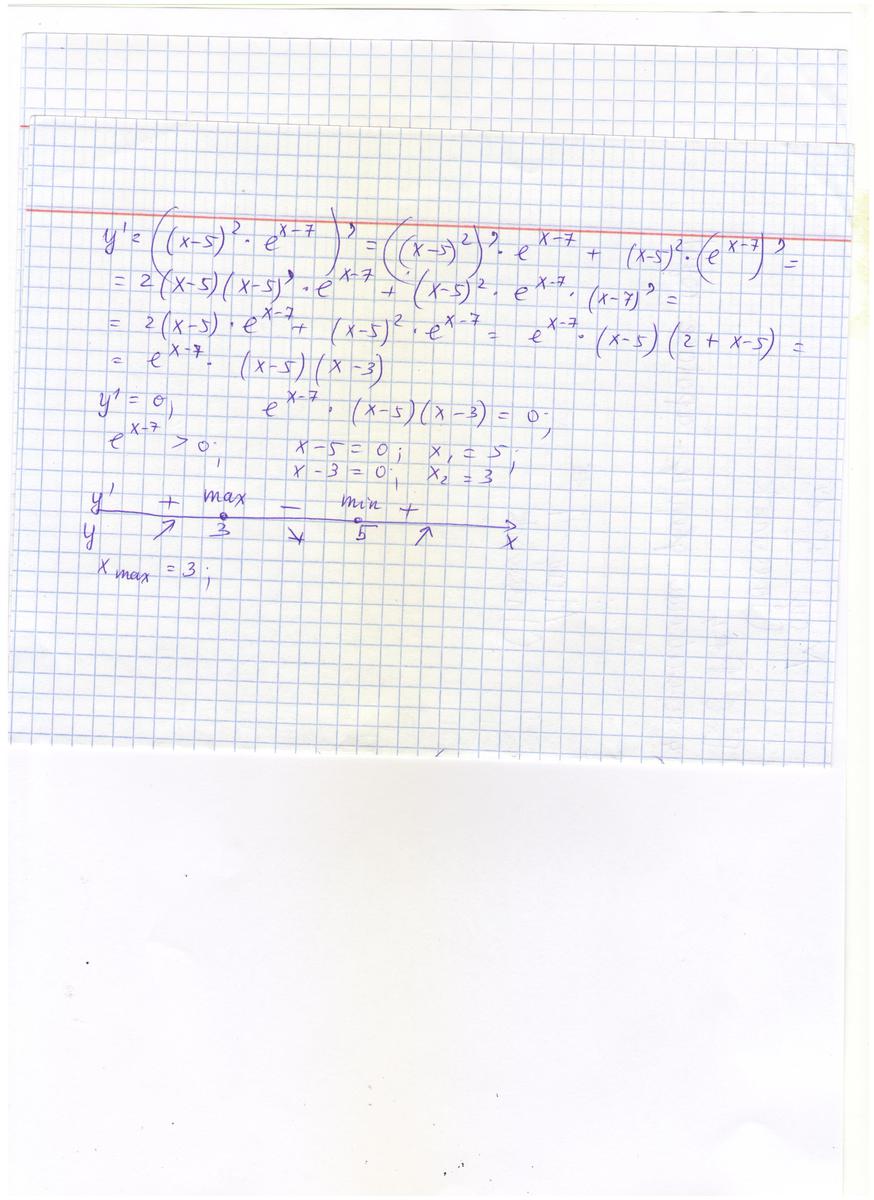 y' = ((x-5)² · e^(x-7))' = ((x-5)²)' · e^(x-7) + (x-5)² · (e^(x-7))' =
= 2(x-5)(x-5)' · e^(x-7) + (x-5)² · e^(x-7) · (x-7)' =
= 2(x-5) · e^(x-7) + (x-5)² · e^(x-7) = e^(x-7) · (x-5)(2 + x-5) =
= e^(x-7) · (x-5)(x-3)
y' = 0; e^(x-7) · (x-5)(x-3) = 0;
e^(x-7) > 0; x-5 = 0; x₁ = 5;
x-3 = 0; x₂ = 3
y' + max − min +
y ↗ 3 ↘ 5 ↗ x
x max = 3;